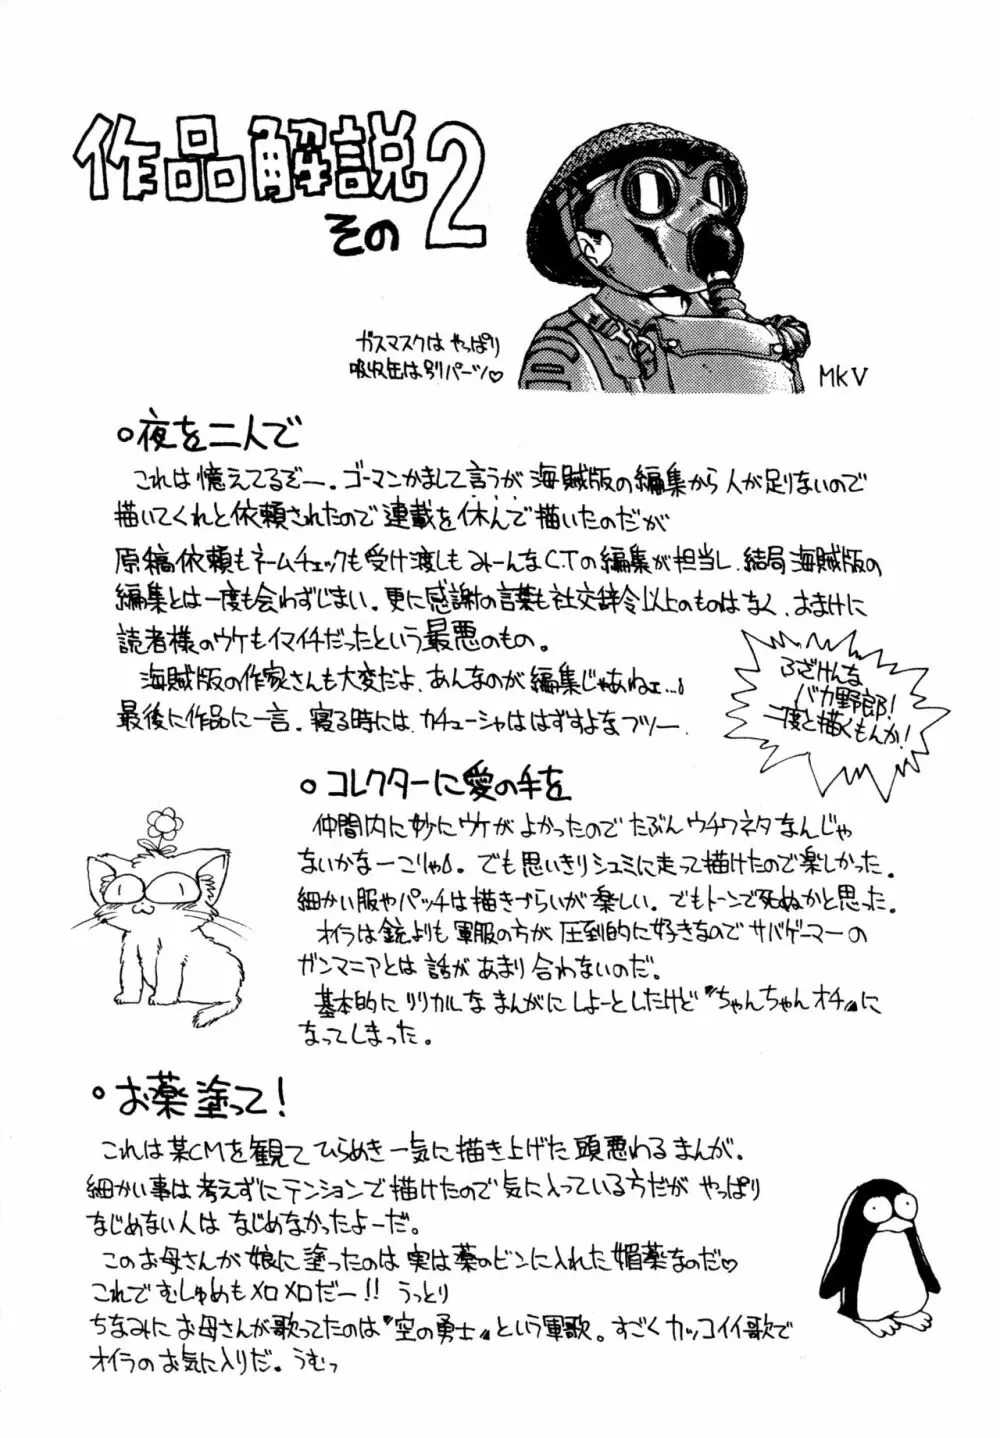 作品解説
その2
ガスマスクは やっぱり
吸収缶は別パーツ♡
MkV
○夜を二人で
これは憶えてるぞー。ゴーマンかまして言うが海賊版の編集から人が足りないので
描いてくれと依頼されたので連載を休んで描いたのだが
原稿依頼もネームチェックも受け渡しもみーんなC.Tの編集が担当し、結局海賊版の
編集とは一度も会わずじまい。更に感謝の言葉も社交辞令以上のものはなく、おまけに
読者様のウケもイマイチだったという最悪のもの。
海賊版の作家さんも大変だよ、あんなのが編集じゃあねェ…。
最後に作品に一言。寝る時には、カチューシャははずすよなフツー
ふざけんな
バカ野郎!
二度と描くもんか!
○コレクターに愛の手を
仲間内に妙にウケがよかったのでたぶんウチワネタなんじゃ
ないかなーこりゃ。でも思いきりシュミに走って描けたので楽しかった。
細かい服やパッチは描きづらいが楽しい。でもトーンで死ぬかと思った。
オイラは銃よりも軍服の方が圧倒的に好きなのでサバゲーマーの
ガンマニアとは話があまり合わないのだ。
基本的にリリカルなまんがにしよーとしたけど〝ちゃんちゃんオチ〟に
なってしまった。
○お薬塗って!
これは某CMを観てひらめき一気に描き上げた頭悪わるまんが。
細かい事は考えずにテンションで描けたので気に入っている方だがやっぱり
なじめない人はなじめなかったよーだ。
このお母さんが娘に塗ったのは実は薬のビンに入れた媚薬なのだ♡
これでむしゅめもメロメロだー!! うっとり
ちなみにお母さんが歌ってたのは〝空の勇士〟という軍歌。すごくカッコイイ歌で
オイラのお気に入りだ。うむっ